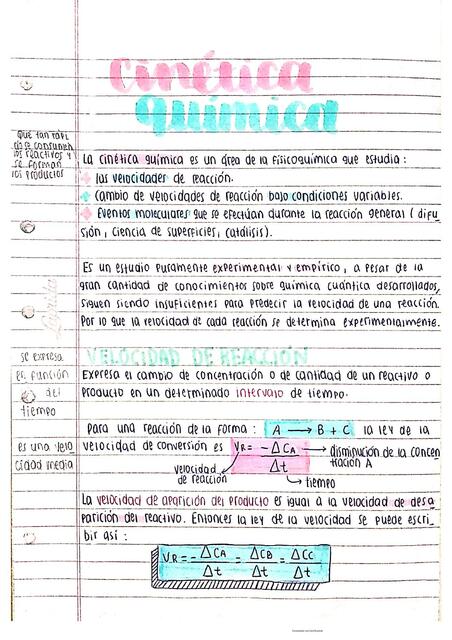 Cinética
química
Que tan rápi
do se consumen
los reactivos y
se forman
los productos
La cinética química es un área de la fisicoquímica que estudia :
las velocidades de reacción.
Cambio de velocidades de reacción bajo condiciones variables.
Eventos moleculares que se efectúan durante la reacción general ( difu
sión , ciencia de superficies , catálisis ) .
Es un estudio puramente experimental y empírico , a pesar de la
gran cantidad de conocimientos sobre química cuántica desarrollados,
siguen siendo insuficientes para predecir la velocidad de una reacción.
Por lo que la velocidad de cada reacción se determina experimentalmente.
VELOCIDAD DE REACCIÓN
se expresa
en función
del
tiempo
Expresa el cambio de concentración o de cantidad de un reactivo o
producto en un determinado intervalo de tiempo.
Para una reacción de la forma : A → B + C la ley de la
es una velo
cidad media
velocidad de conversión es VR = -ΔCA / Δt → disminución de la concen
tración A
velocidad
de reacción
→ tiempo
La velocidad de aparición del producto es igual a la velocidad de desa
parición del reactivo. Entonces la ley de la velocidad se puede escri
bir así :
VR = - ΔCA / Δt = ΔCB / Δt = ΔCC / Δt